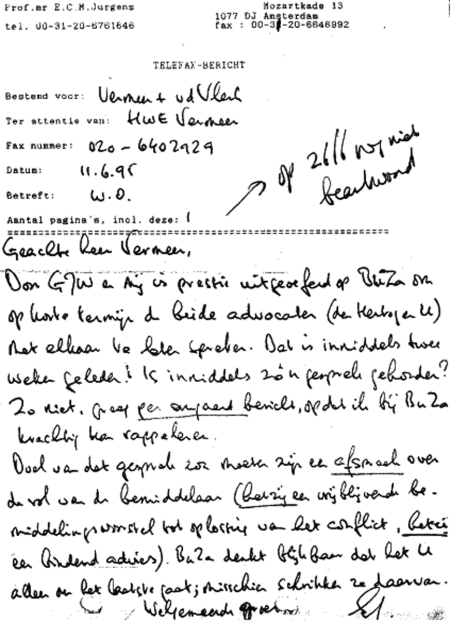 Prof.mr E.C.M.Jurgens Mozartkade 13
1077 DJ Amsterdam
tel. 00-31-20-6761646 fax : 00-31-20-6646992
TELEFAX-BERICHT
Bestemd voor: Vermeer + vd Vlerk
Ter attentie van: HWE Vermeer
Fax nummer: 020-6402929
Datum: 11.6.95
op 26/6 nog niet
beantwoord
Betreft: W.O.
Aantal pagina's, incl. deze: 1
Geachte heer Vermeer,
Door GJW en mij is pressie uitgeoefend op BuZa om
op korte termijn de beide advocaten (den Hertog en U)
met elkaar te laten spreken. Dat is inmiddels twee
weken geleden! Is inmiddels zo'n gesprek gehouden?
Zo niet, graag per omgaand bericht, opdat ik bij BuZa
krachtig kan rappeleren.
Doel van dat gesprek zou moeten zijn een afspraak over
de rol van de bemiddelaar (hetzij een vrijblijvende be-
middelingsvoorstel tot oplossing van het conflict, hetzij
een bindend advies). BuZa denkt blijkbaar dat het U
alleen om het laatste gaat; misschien schrikken ze daarvan.
Welgemeende groet